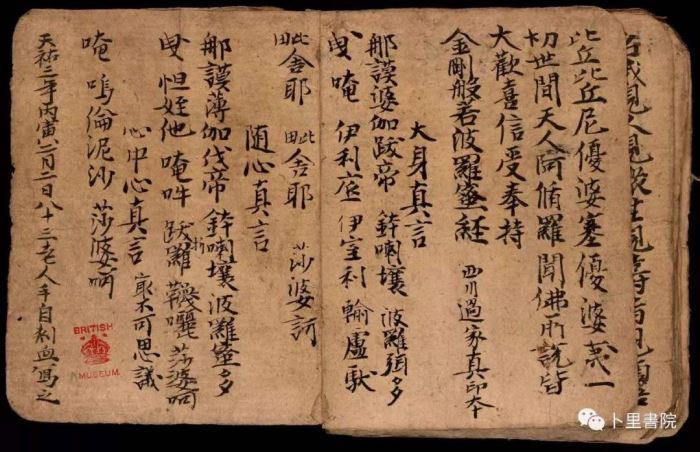 我見人見
比丘比丘尼優婆塞優婆夷一
切世間天人阿脩羅聞佛所說皆
大歡喜信受奉持
金剛般若波羅蜜經 西川過家真印本
大身真言
那謨婆伽跋帝 鉢喇壤 波羅弭多
曳 唵 伊利底 伊室利 輸盧馱
毗舍耶 毗舍耶 莎婆訶
隨心真言
那謨薄伽伐帝 鉢喇壤波羅蜜多
曳 怛姪他 唵 吽 跋折羅 莎婆訶
心中心真言 最不可思議
唵 嗚倫泥沙 莎婆訶
天祐三年丙寅二月二日八十三老人手自刺血寫之
BRITISH
MUSEUM
卜里書院